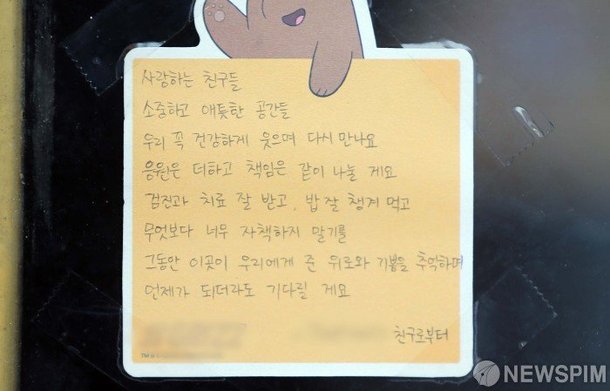 사랑하는 친구들
소중하고 애틋한 공간들
우리 꼭 건강하게 웃으며 다시 만나요
응원은 더하고 책임은 같이 나눌 게요
검진과 치료 잘 받고, 밥 잘 챙겨 먹고
무엇보다 너무 자책하지 말기를
그동안 이곳이 우리에게 준 위로와 기쁨을 추억하며
언제가 되더라도 기다릴 게요
친구로부터
NEWSPIM